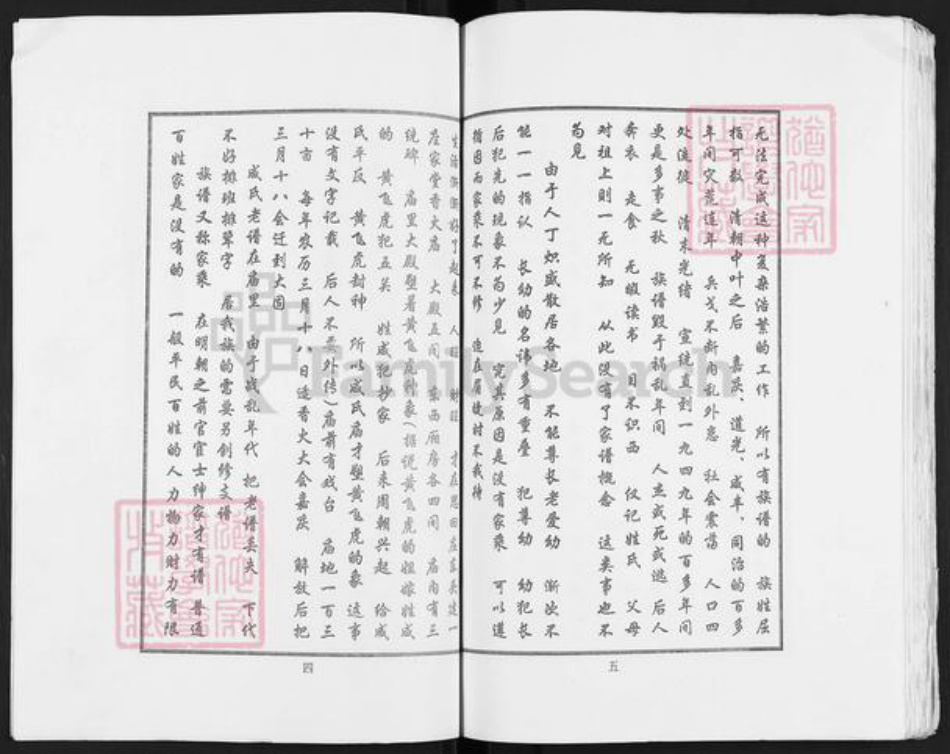 生活渐渐好了起来 人旺 财旺 才在思田庄东建一
座家堂香大庙 大殿五间 东西厢房各四间 庙内有三
统碑 庙里大殿塑着黄飞虎神象(据说黄飞虎的姐嫁姓成
的 黄飞虎犯五关 姓成犯抄家 后来周朝兴起 给成
氏平反 黄飞虎封神 所以成氏庙才塑黄飞虎的象 这事
没有文字记载 后人不要外传)庙前有戏台 庙地一百三
十亩 每年农历三月十八日逢香火大会嘉庆 解放后把
三月十八会迁到大固
成氏老谱在庙里 由于战乱年代 把老谱丢失 下代
不好排班排辈字 居我族的需要另创修文谱
族谱又称家乘 在明朝之前官宦士绅家才有谱 普通
百姓家是没有的 一般平民百姓的人力物力财力有限
四
无法完成这种复杂浩繁的工作 所以有族谱的 族姓屈
指可数 清朝中叶之后 嘉庆、道光、咸丰、同治的百多
年间灾荒连年 兵戈不断内乱外患 社会震荡 人口四
处流徙 清末光绪 宣统直到一九四九年的百多年间
更是多事之秋 族谱毁于祸乱年间 人亡或死或逃 后人
奔衣 走食 无暇读书 目不识西 仅记姓氏 父母
对祖上则一无所知 从此没有了家谱概念 这类事也不
为见
由于人丁炽盛散居各地 不能尊长老爱幼 渐次不
能一一指认 长幼的名讳多有重叠 犯尊幼 幼犯长
后犯先的现象不为少见 究其原因是没有家乘 可以遵
循因而家乘不可不修 迫在眉睫时不我待
五
FamilySearch